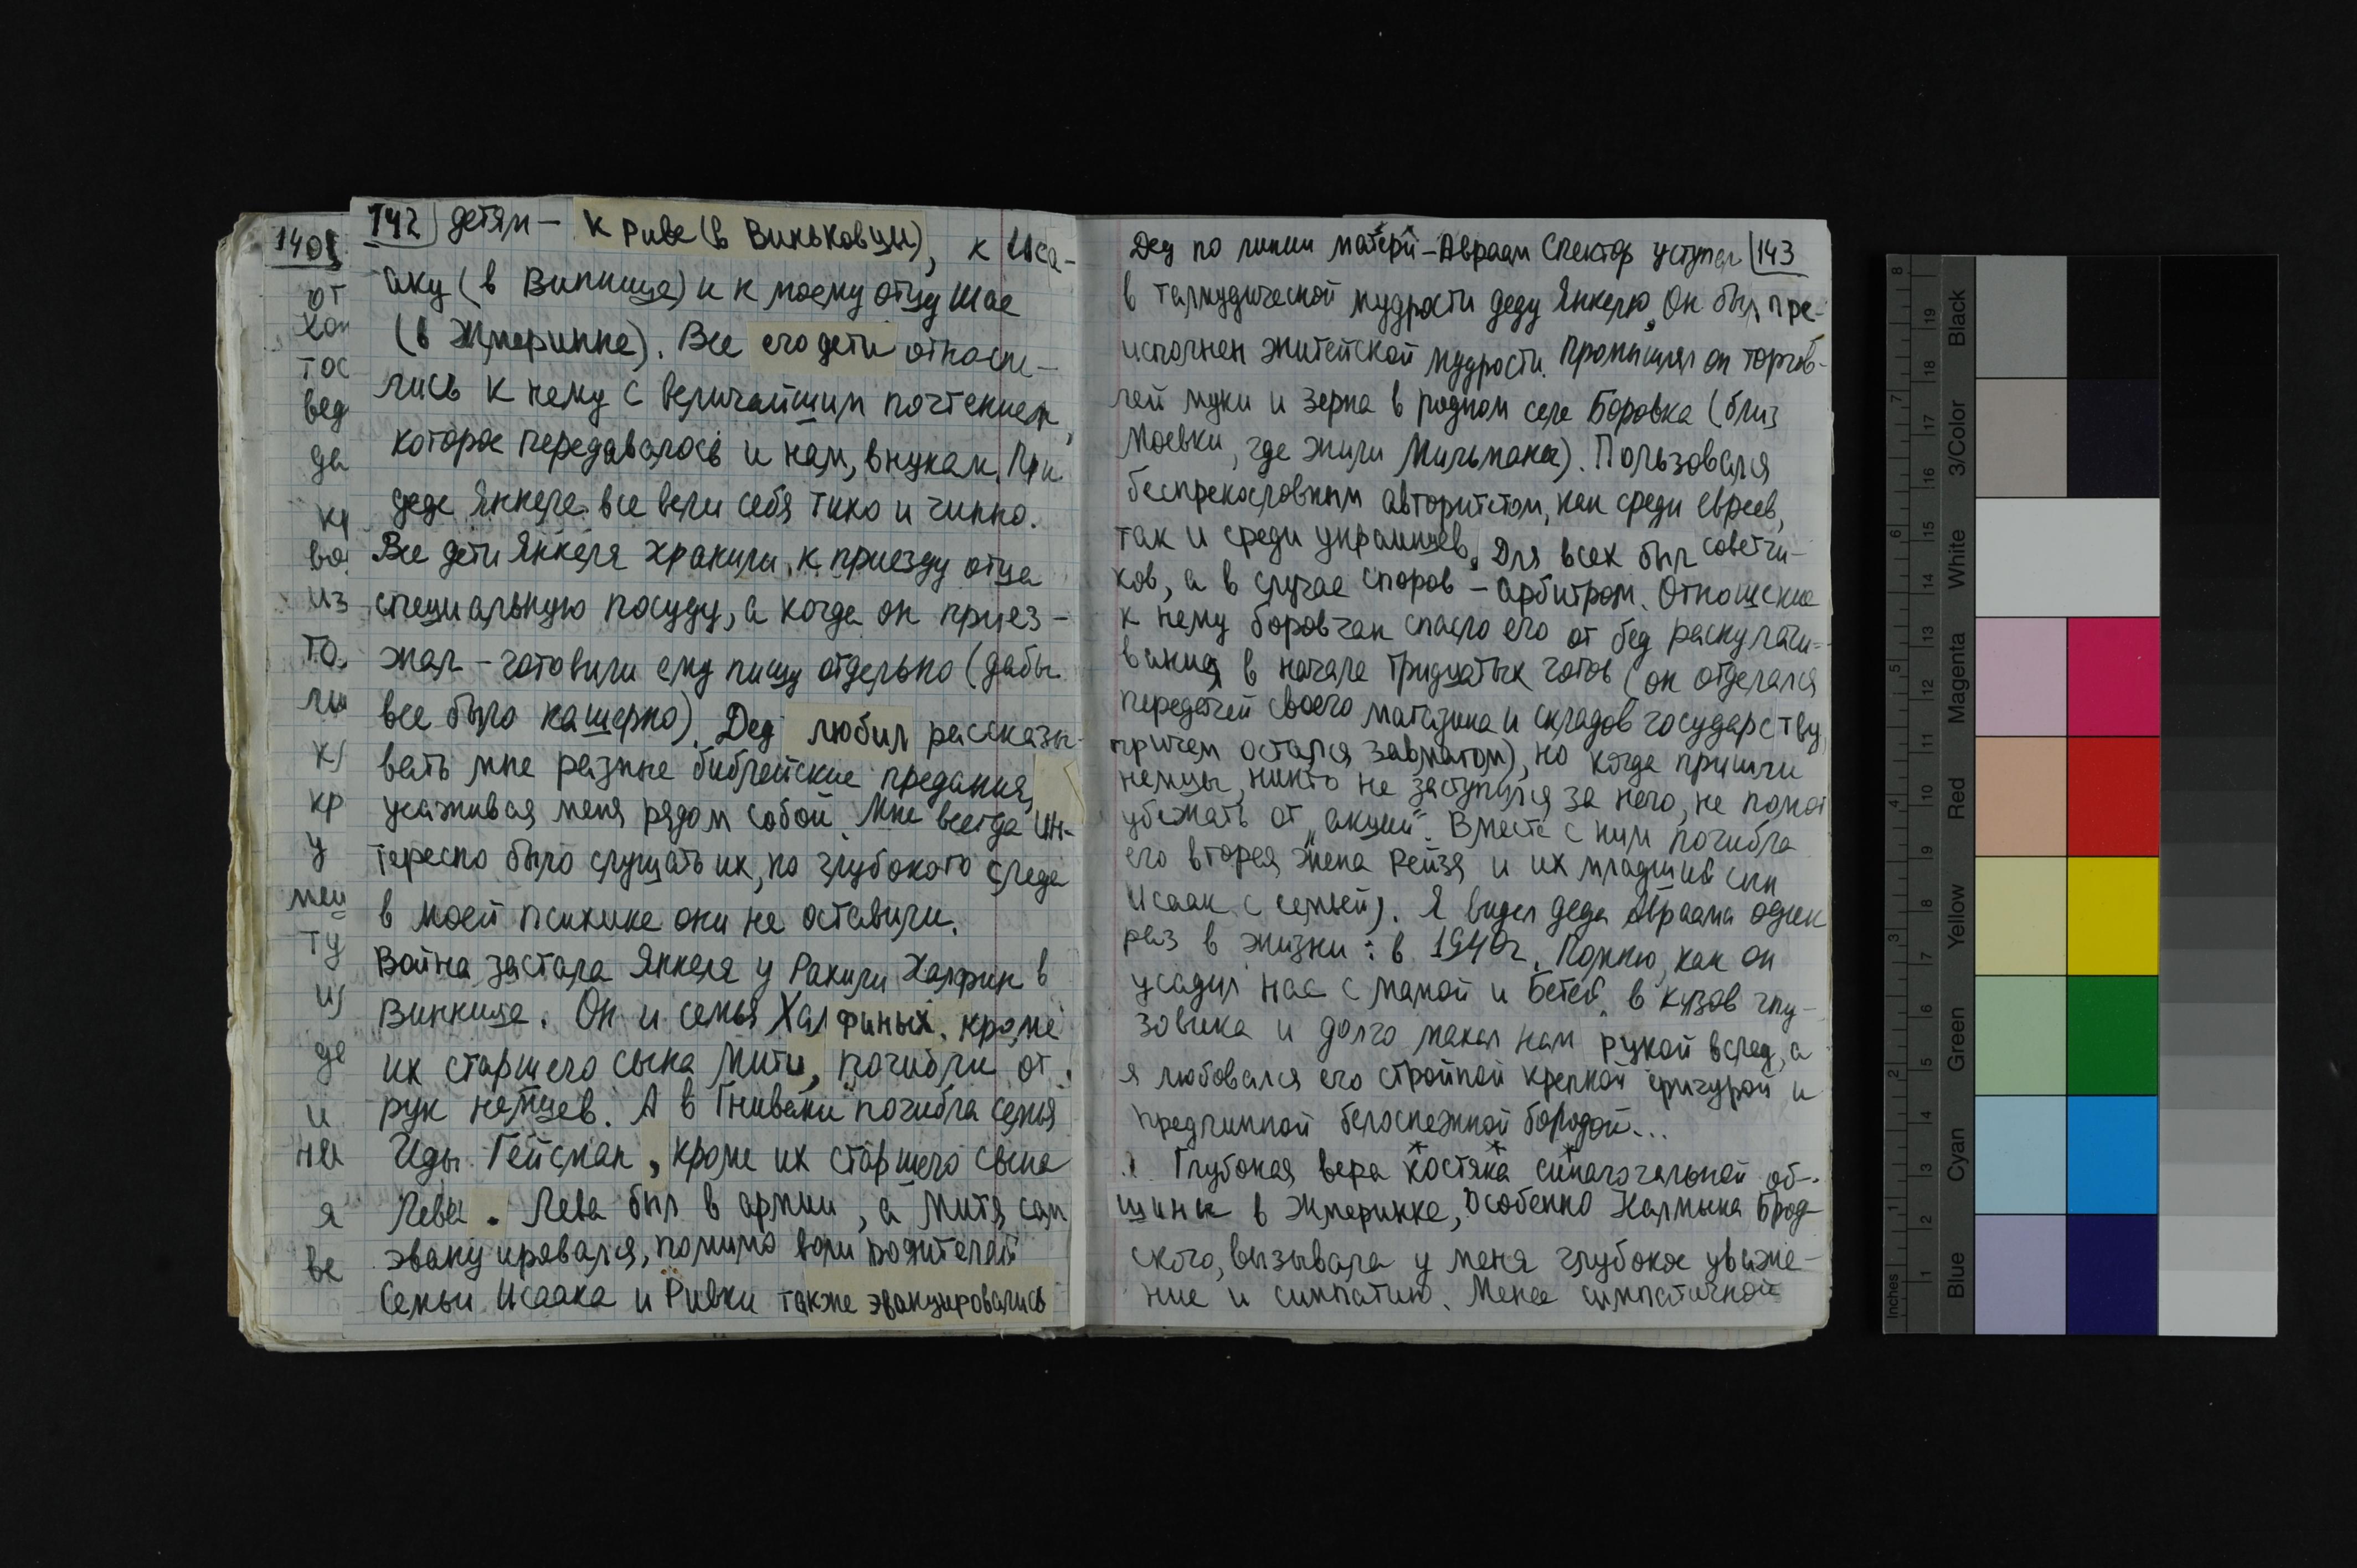 140
от
хо
тос
вед
да
кр
во
из
то
ли
к
кр
у
ту
де
и
на
я
ве
142 детям — к Риве (в Виньковцы), к Иса-
аку (в Виннице) и к моему отцу Шае
(в Жмеринке). Все его дети относи-
лись к нему с величайшим почтением,
которое передавалось и нам, внукам. При
деде Янкеле все вели себя тихо и чинно.
Все дети Янкеля хранили к приезду отца
специальную посуду, а когда он приез-
жал — готовили ему пищу отдельно (дабы
все было кашерно). Дед любил рассказы-
вать мне разные библейские предания,
усаживая меня рядом собой. Мне всегда ин-
тересно было слушать их, но глубокого следа
в моей психике они не оставили.
Война застала Янкеля у Рахили Халфин в
Виннице. Он и семья Халфиных, кроме
их старшего сына Мити, погибли от
рук немцев. А в Гнивани погибла семья
Иды Гейсман, кроме их старшего сына
Левы. Лева был в армии, а Митя сам
эвакуировался, помимо воли родителей
Семьи Исаака и Ривки также эвакуировались
Дед по линии матери — Авраам Спектор уступал 143
в талмудической мудрости деду Янкелю. Он был пре-
исполнен житейской мудрости. Промышлял он торгов-
лей муки и зерна в родном селе Боровка (близ
Моевки, где жили Мильманы). Пользовался
беспрекословным авторитетом, как среди евреев,
так и среди украинцев. Для всех был советчи-
ков, а в случае споров — арбитром. Отношение
к нему боровчан спасло его от бед раскулачи-
вания в начале тридцатых готов (он отделался
передачей своего магазина и складов государству,
причем остался завмагом), но когда пришли
немцы, никто не заступился за него, не помог
убежать от „акций". Вместе с ним погибла
его вторая жена Рейзя и их младший сын
Исаак с семьей). Я видел деда Авраама один
раз в жизни: в 1940г. Помню, как он
усадил нас с мамой и Бетей в кузов гру-
зовика и долго махал нам рукой вслед, а
я любовался его стройной крепкой фигурой и
предлинной белоснежной бородой...
Глубокая вера костяка синагогальной об-
щины в Жмеринке, особенно Калмына Брод-
ского, вызывала у меня глубокое уваже-
ние и симпатию. Менее симпатичной
Inches
1
2
3
4
5
6
7
8
1
2
4
5
6
7
8
9
10
11
12
13
14
15
16
17
18
19
Blue
Cyan
Green
Yellow
Red
Magenta
White
3/Color
Black